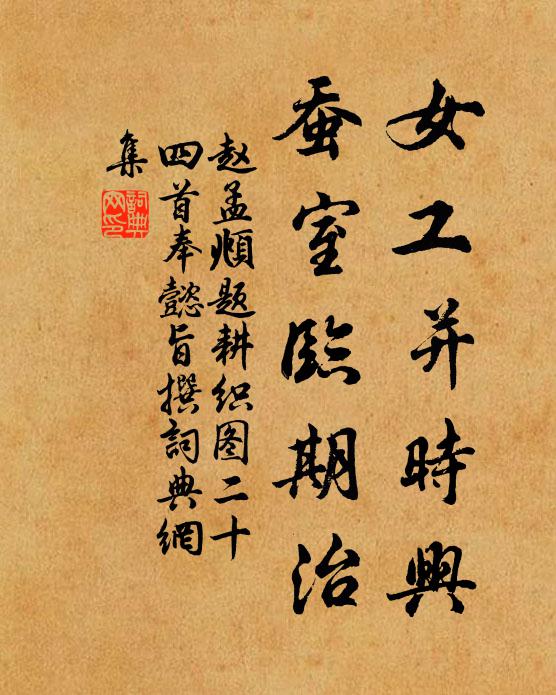 女工并時興
蚕室臨期治
赵孟頫题耕织图二十
四首奉懿旨撰詞典網
集
詞典
网印